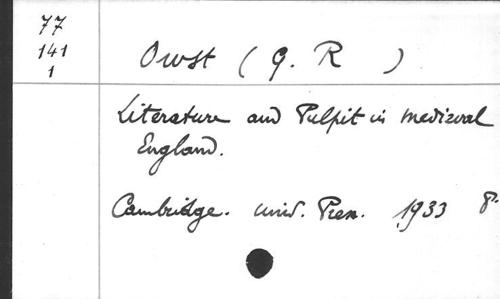 77
141
1
Owst (G. R )
Literature and Pulpit in mediæval
England.
Cambridge. Univ. Press. 1933 8°